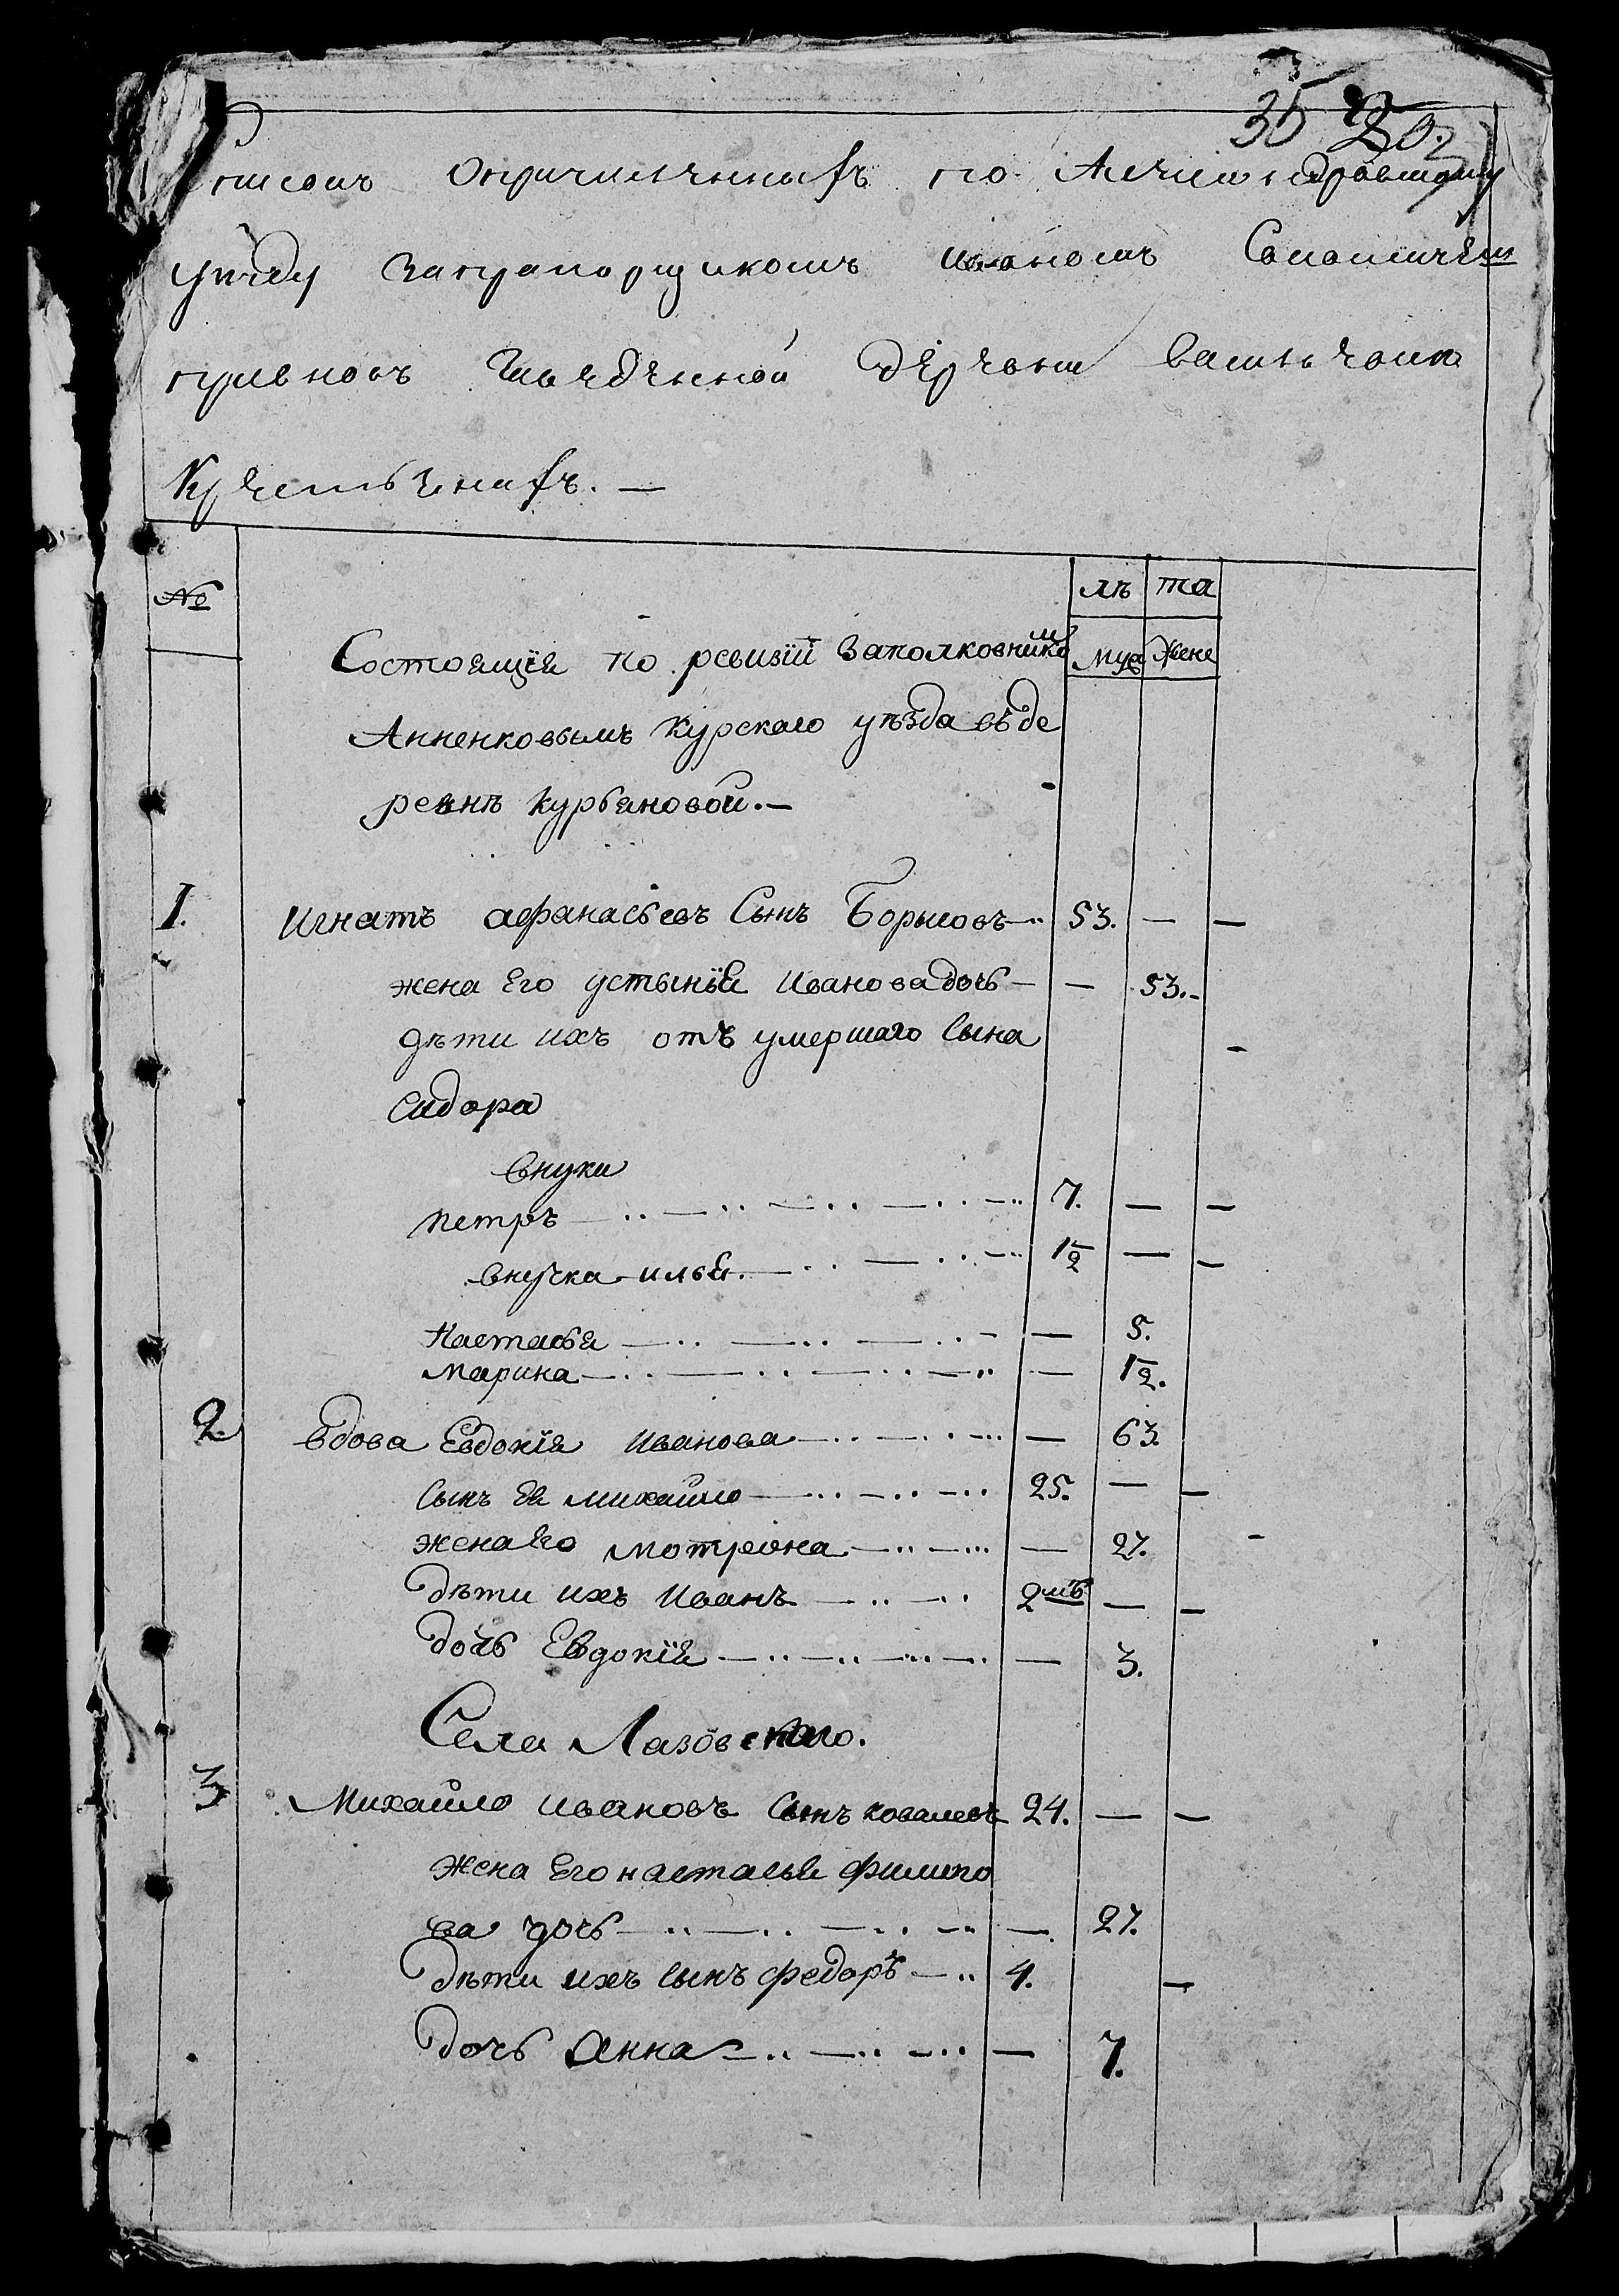 35
Списокъ опричисленныхъ по Александровскому
уѣзду запрапорщикомъ Иваномъ
деревни
Крестьянахъ. —
№
лѣ та
Состоящїя по ревизїй заполковникомъ
муж жене
Анненковымъ курскаго уѣзда въ де
ревнѣ курбановой. —
1. Игнатъ афанасьевъ Сынъ Борисовъ — 53. — —
жена Его устыньѣ Иванова дочь — — 53. —
дѣти ихъ отъ умершаго Сына
Сидора
внуки
петръ — 7. — —
внучка илья. — 1/2 — —
Настасья — — 5.
Марина — — 1/2.
2. Вдова Евдокїя Иванова — — 63.
Сынъ Ея михайло — 25. — —
жена Его мотрiона — — 27.
дѣти ихъ Иванъ — 2 мѣ — —
дочь Евдокїя — — 3.
Села Лазовскаго.
3 Михайло ивановъ Сынъ ковалевъ 24. — —
жена Его настасья филипо
ва дочь — — 27.
дѣти ихъ сынъ федоръ — 4. —
дочь Анна — — 7.